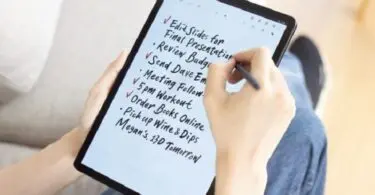 ✓ Edit Slides for
Final Presentation
· Review Budget
✓ Send Dave Em
· Meeting Follow
✓ 5pm Workout
· Order Books Online
· Pick up Wine & Dips
Megan's
Tomorrow